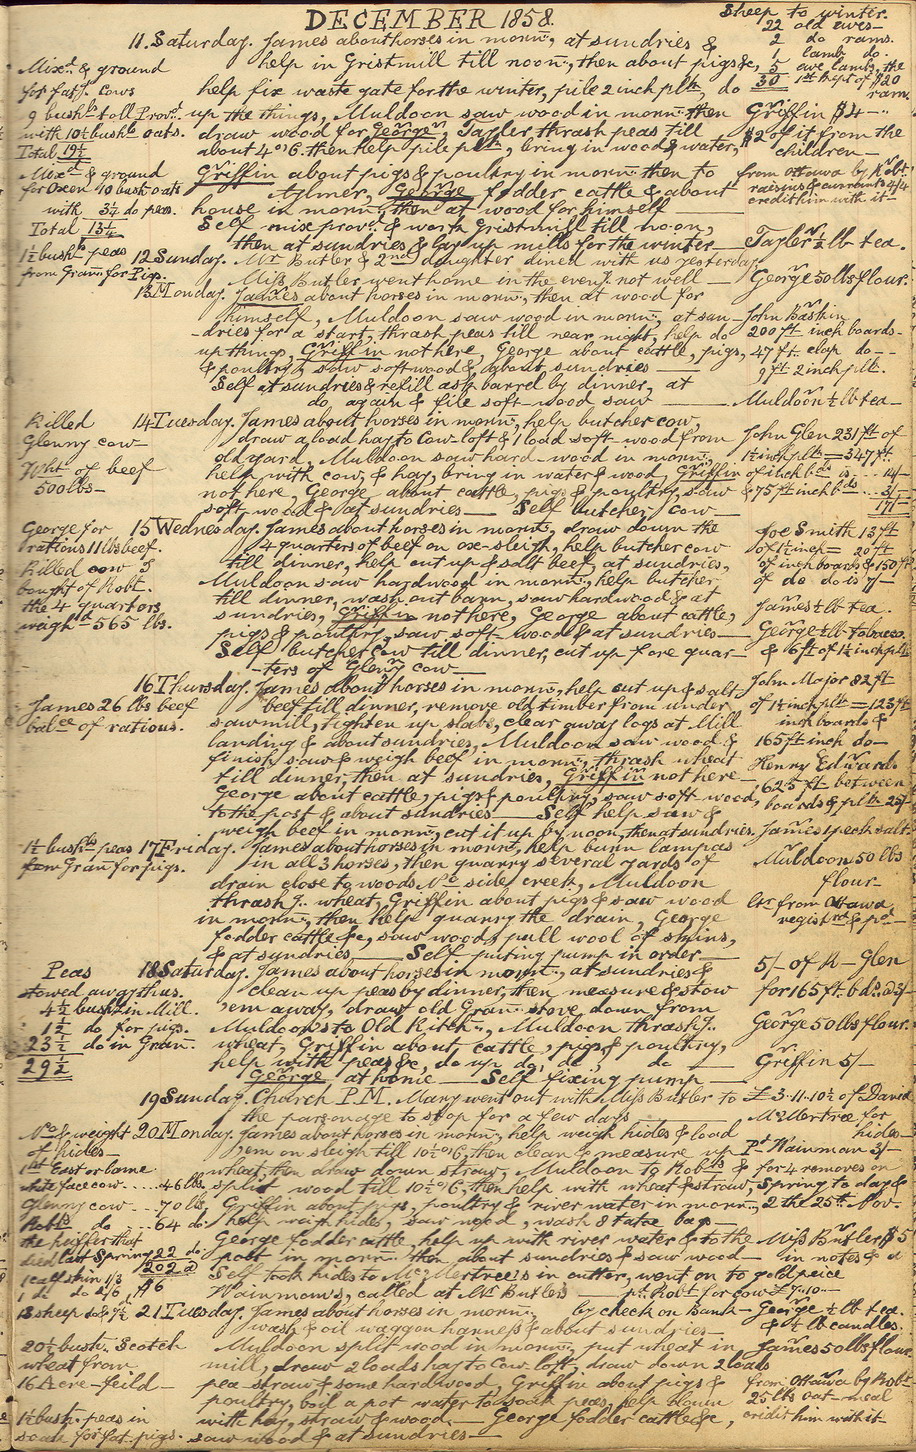 DECEMBER 1858.
Sheep to winter.
22 old ewes
2 do rams.
lamb do.
5 ewe lambs, the
30 1st kept of $20
ram.
11. Saturday. James about horses in morng, at sundries &
help in Gristmill till noon, then about pigs &c,
help fix waste gate for the winter, pile 2 inch plk, do
up the things, Muldoon saw wood in morng then
draw wood for George, Tayler thrash peas till
about 4 o'c. then help pile plk, bring in wood & water,
Griffin about pigs & poultry in morng then to
Aylmer, George fodder cattle & about
house in morng, then at wood for himself
Self mix provr. & work Gristmill till noon,
then at sundries & lay up mills for the winter
Mixd. & ground
for fatg. Cows
9 bushls toll Provr.
with 10½ bushls oats.
Total 19½
Mixd & ground
for Oxen 10 bush oats
with 3¼ do peas.
Total 13¼
1½ bushls peas
from Gran. for Pigs.
Griffin $4
$2 of it from the
children
from Ottawa by Robt.
raisins & currants 4/4
credit him with it
Tayler ½ lb tea.
12 Sunday. Mr Butler & 2nd daughter dined with us yesterday
Miss Butler went home in the eveng. not well
George 50 lbs flour.
13 Monday. James about horses in morng, then at wood for
himself, Muldoon saw wood in morng, at sun-
dries for a start, thrash peas till near night, help do
up things, Griffin not here, George about cattle, pigs,
& poultry, & saw soft wood & about sundries
Self at sundries & refill ash barrel by dinner, at
do again & file soft-wood saw
John Baskin
200 ft inch boards
47 ft. clap do
9 ft 2 inch plk.
Muldoon ½ lb tea
14 Tuesday. James about horses in morng, help butcher cow,
draw a load hay to Cow-loft & 1 load soft-wood from
old yard, Muldoon saw hard-wood in morng,
help with cow, & hay, bring in water & wood Griffin
not here, George about cattle, pigs & poultry, saw
soft wood & at sundries Self butcher cow
Killed
Glenny cow
Wht of beef
500 lbs
John Glen 231 ft of
1½ inch plk = 347 ft.
of inch bds is 14/-
& 75 ft inch bds 3/-
17/-
15 Wednesday. James about horses in morng, draw down the
4 quarters of beef on ox-sleigh, help butcher cow
till dinner, help cut up & salt beef, at sundries,
Muldoon saw hardwood in morng, help butcher
till dinner, wash out barn, saw hardwood & at
sundries, Griffin not here, George about cattle,
pigs & poultry, saw soft-wood & at sundries
Self butcher cow till dinner, cut up fore quar-
ters of Glenny cow
George for
rations 11 lbs beef.
Killed cow I
bought of Robt.
the 4 quarters
weighd 565 lbs.
Joe Smith 13 ft
of 1½ inch = 20 ft
of inch boards & 150 ft
of do do is 7/-
James ½ lb tea.
George ½ lb tobacco.
& 6 ft of 1½ inch plk
16 Thursday. James about horses in morng, help cut up & salt
beef till dinner, remove old timber from under
sawmill, tighten up slabs, clear away logs at Mill
landing & about sundries, Muldoon saw wood &
finish saw & weigh beef in morng, thrash wheat
till dinner, then at sundries, Griffin not here
George about cattle, pigs & poultry, saw soft wood,
to the post & about sundries Self help saw &
weigh beef in morng, cut it up by noon, then at sundries.
James 26 lbs beef
balce of rations.
John Major 82 ft
of 1½ inch plk = 123 ft
inch boards &
165 ft inch do
Henry Edwards
625 ft between
boards & plk 25/-
James 1 peck salt.
17 Friday. James about horses in morng, help burn lampas
in all 3 horses, then quarry several yards of
drain close to woods No side creek, Muldoon
thrashg. wheat, Griffin about pigs & saw wood
in morng, then help quarry the drain, George
fodder cattle &c, saw wood, pull wool of skins,
& at sundries Self puting pump in order
1½ bushls peas
from Gran for pigs.
Muldoon 50 lbs
flour
ltr from Ottawa
registrd & pd
18 Saturday. James about horses in morng, at sundries &
clean up peas by dinner, then measure & stow
'em away, draw old Gran. stove down from
Muldoon's to Old Kitchn, Muldoon thrashg.
wheat, Griffin about cattle, pigs & poultry,
help with peas &c, do up do, do, do
George at home Self fixing pump
Peas
stowed away thus.
4½ bushls in Mill.
1½ do for pigs.
23½ do in Gran.
29½
5/- of R Glen
for 165 ft bds. @ 3/-
George 50 lbs flour.
Griffin 5/-
19 Sunday. Church P.M. Mary went out with Miss Butler to
the parsonage to stop for a few days
£3.11.10½ of David
McMertree for
hides
20 Monday. James about horses in morng, help weigh hides & load
'em on sleigh till 10½ o'c, then clean & measure up
wheat, then draw down straw, Muldoon to Robts &
split wood till 10½ o'c, then help with wheat & straw,
Griffin about pigs, poultry & river water in morng,
help weigh hides, saw wood, wash 8 tatoe bags
George fodder cattle, help up with river water & to the
post in morng. then about sundries & saw wood
Self took hides to McMertree's in cutter, went on to gold piece
Wainman's, called at Mr Butler's
No & weight
of hides
1st East or lame
white face cow 46 lbs.
Glenny cow 70 lbs.
Robts do 64 do
the heiffer that
died last Spring 22 do
202 @
1 calf skin 1/3
1 do do 2/6, A6
13 sheep do @ 7½
Pd Wainman 3/-
for 4 removes on
Spring to day &
2 the 25th Nov.
Miss Butler $5
in notes & a
pd. Robt for cow £7.10
by check on Bank
21 Tuesday. James about horses in morng
wash & oil waggon harness & about sundries
Muldoon split wood in morng, put wheat in
mill, draw 2 loads hay to Cow-loft, draw down 2 loads
pea-straw & some hardwood, Griffin about pigs &
poultry, boil a pot water to soak peas, help
with hay, straw & wood George fodder cattle &c,
saw wood & at sundries
20½ bush. Scotch
wheat from
16 Acre-feild
1½ bush. peas in
soak for fat. pigs.
George ½ lb tea.
& 1 lb candles.
James 50 lbs flour
from Ottawa by Robt
25 lbs oat-meal
credit him with it